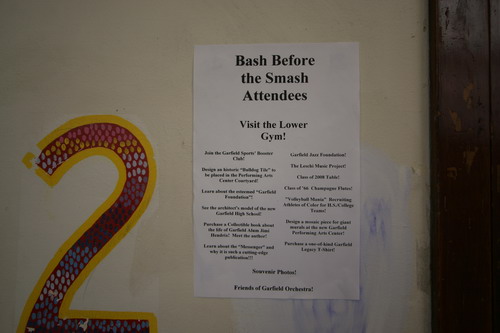 Bash Before
the Smash
Attendees
Visit the Lower
Gym!
Join the Garfield Sports' Booster
Club!
Design an historic "Bulldog Tile" to
be placed in the Performing Arts
Center Courtyard!
Learn about the esteemed "Garfield
Foundation"!
See the architect's model of the new
Garfield High School!
Purchase a Collectible book about
the life of Garfield Alum Jimi
Hendrix! Meet the author!
Learn about the "Messenger" and
why it is such a cutting-edge
publication!!!
Garfield Jazz Foundation!
The Leschi Music Project!
Class of 2008 Table!
Class of '66 Champagne Flutes!
"Volleyball Mania" Recruiting
Athletes of Color for H.S./College
Teams!
Design a mosaic piece for giant
murals at the new Garfield
Performing Arts Center!
Purchase a one-of-kind Garfield
Legacy T-Shirt!
Souvenir Photos!
Friends of Garfield Orchestra!
2